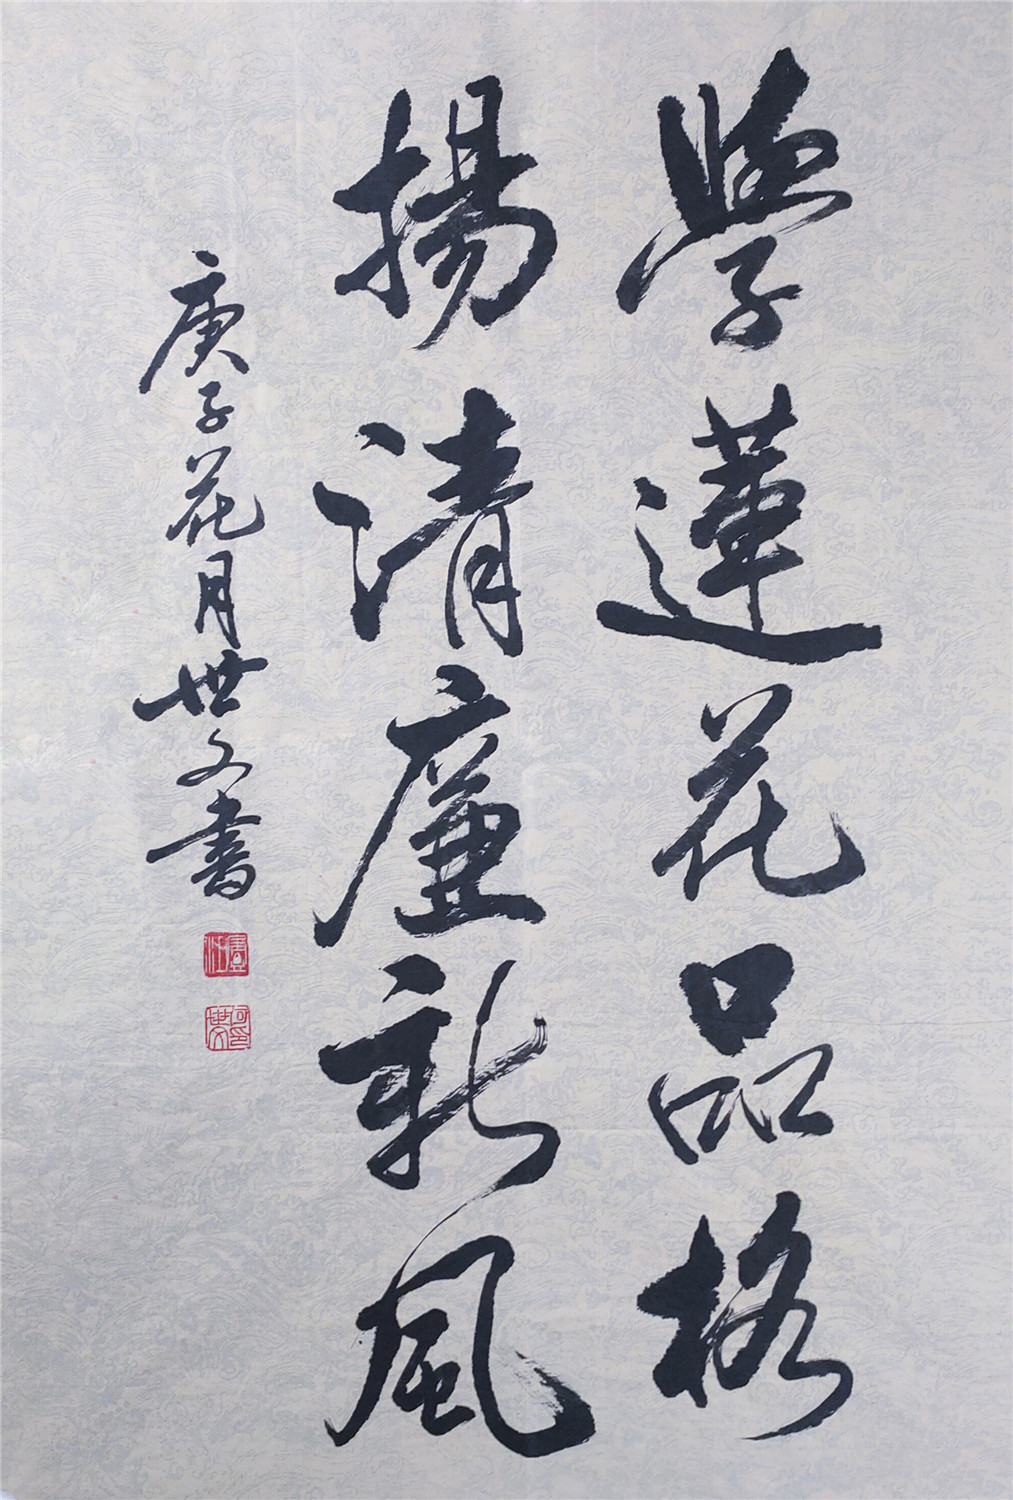 學蓮花品格
揚清廉新風
庚子花月世文書